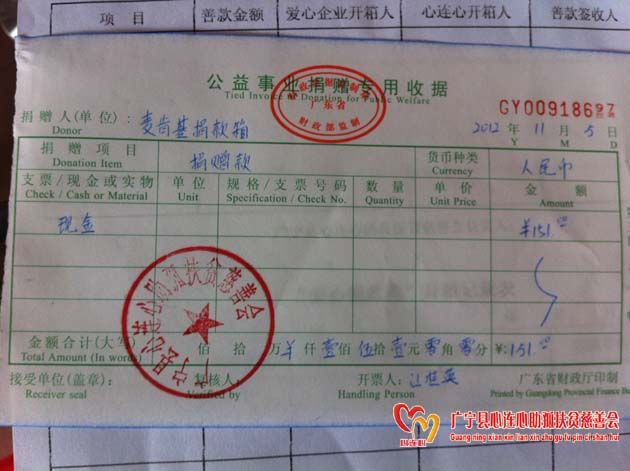 项 目 善款金额 爱心企业开箱人 心连心开箱人 善款签收人
公益事业捐赠专用收据
Tied Invoice of Donation for Public Welfare
广东省
财政部监制
捐赠人(单位): 麦肯基捐款箱
Donor
2012 年 11 月 5 日
Y M D
捐赠项目 捐赠款 货币种类 人民币
Donation Item Currency
支票/现金或实物 单位 规格/支票号码 数量 单价 金额
Check / Cash or Material Unit Specification / Check No. Quantity Unit Price Amount
现金 ¥151.00
广宁县心连心助强扶贫慈善会
金额合计(大写) 佰 拾 万 ¥ 仟 壹佰 伍拾 壹元 零角 零分 ¥:151.00
Total Amount (In words)
接受单位(盖章): 复核人: 开票人: 广东省财政厅印制
Receiver seal Verified by Handling Person Printed by Guangdong Provincial Finance
心连心
广宁县心连心助强扶贫慈善会
Guang ning xian xin lian xin zhu qiang fu pin ci shan hui